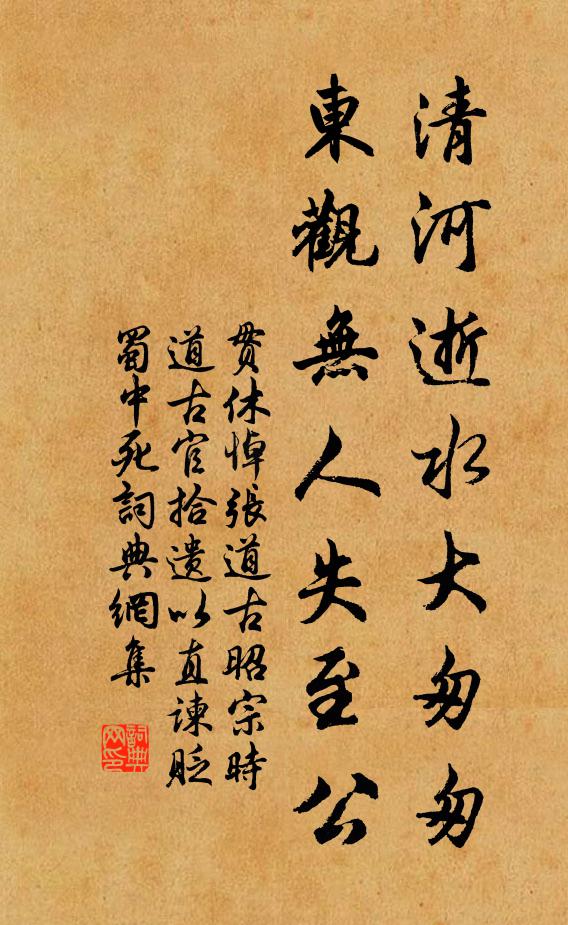 清河逝水大匆匆
東觀無人失至公
貫休悼張道古昭宗時
道古官拾遺以直諫貶
蜀中死詞典網集
詞典網印